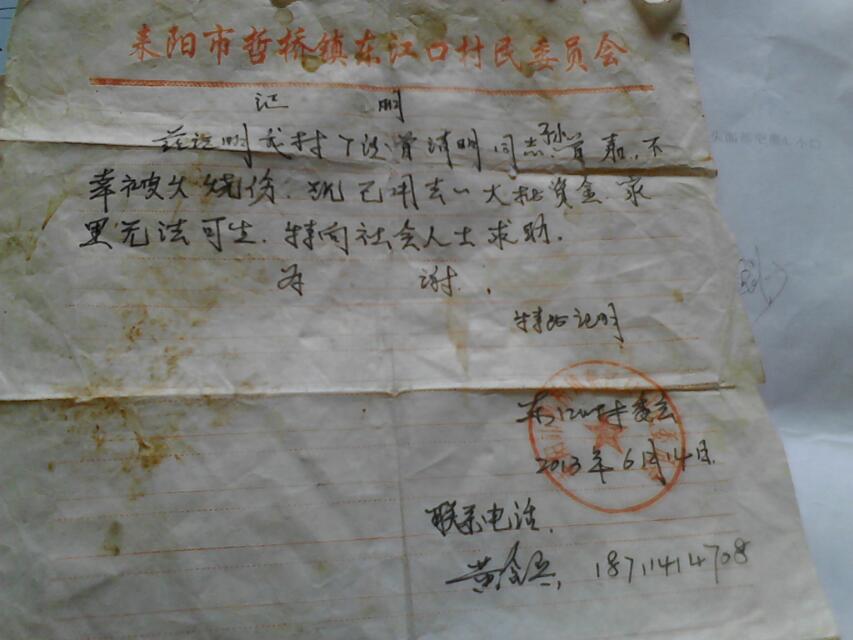 耒阳市哲桥镇东江口村民委员会
证 明
兹证明我村丁段曾清明同志孙儿曾嘉,不
幸被火烧伤.现已用去一大批资金.家
里无法可生.特向社会人士求助.
为 谢.
特此证明
东江口村委会
2013年6月14日.
联系电话.
黄 18711414708